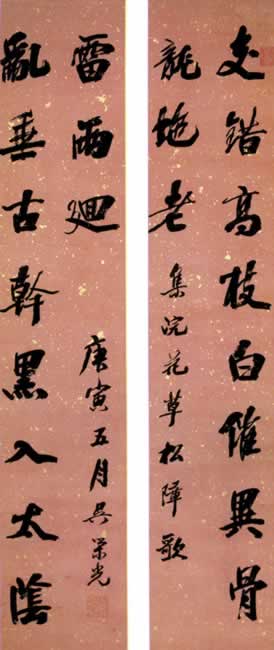 交錯高枝白催異骨
龍虵老
集浣花草松障歌
亂垂古幹黑入太陰
雷雨廻
庚寅五月吳榮光